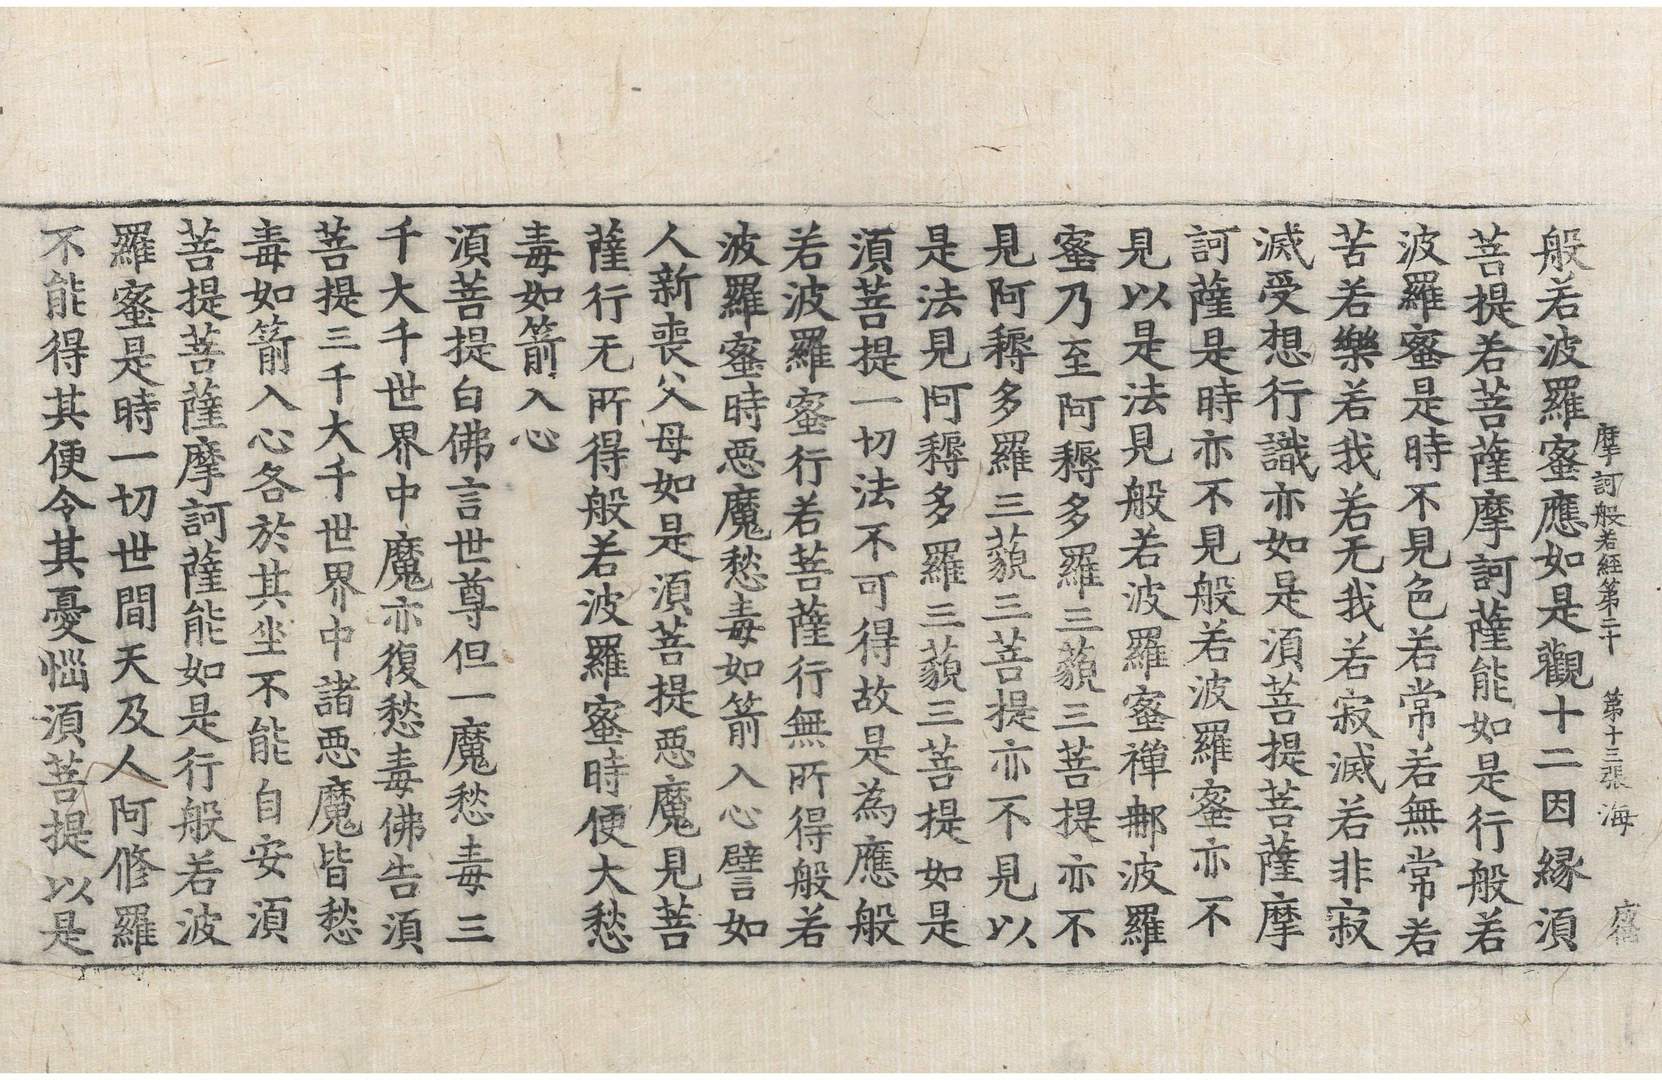 摩訶般若經第二十　第十三張　海
般若波羅蜜應如是觀十二因緣湏
菩提若菩薩摩訶薩能如是行般若
波羅蜜是時不見色若常若無常若
苦若樂若我若无我若寂滅若非寂
滅受想行識亦如是湏菩提菩薩摩
訶薩是時亦不見般若波羅蜜亦不
見以是法見般若波羅蜜禪郍波羅
蜜乃至阿耨多羅三藐三菩提亦不
見阿耨多羅三藐三菩提亦不見以
是法見阿耨多羅三藐三菩提如是
湏菩提一切法不可得故是為應般
若波羅蜜行若菩薩行無所得般若
波羅蜜時悪魔愁毒如箭入心譬如
人新喪父母如是湏菩提悪魔見菩
薩行无所得般若波羅蜜時便大愁
毒如箭入心
湏菩提白佛言世尊但一魔愁毒三
千大千世界中魔亦復愁毒佛告湏
菩提三千大千世界中諸悪魔皆愁
毒如箭入心各於其坐不能自安湏
菩提菩薩摩訶薩能如是行般若波
羅蜜是時一切世間天及人阿修羅
不能得其便令其憂惱湏菩提以是